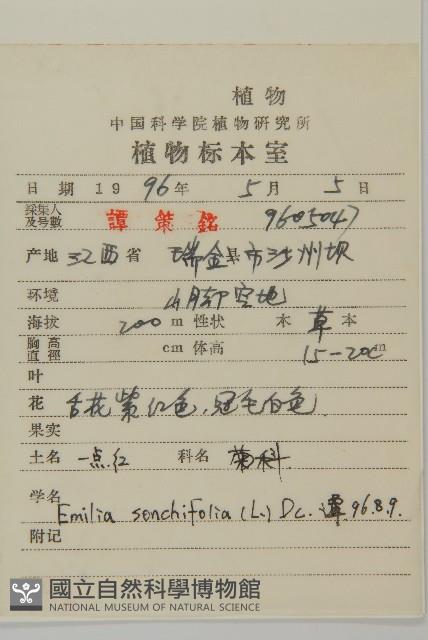 植物
中国科学院植物研究所
植物标本室
日期 19 96 年 5 月 5 日
採集人及号數 譚策銘 9605047
产地 江西省 瑞金县市沙州坝
环境 山脚空地
海拔 200 m 性状 木 草 本
胸高直徑 cm 体高 15-20cm
叶
花 舌花紫红色,冠毛白色
果实
土名 一点红 科名 菊科
学名 Emilia sonchifolia (L.) DC. 譚 96.8.9.
附记
國立自然科學博物館
NATIONAL MUSEUM OF NATURAL SCIENCE